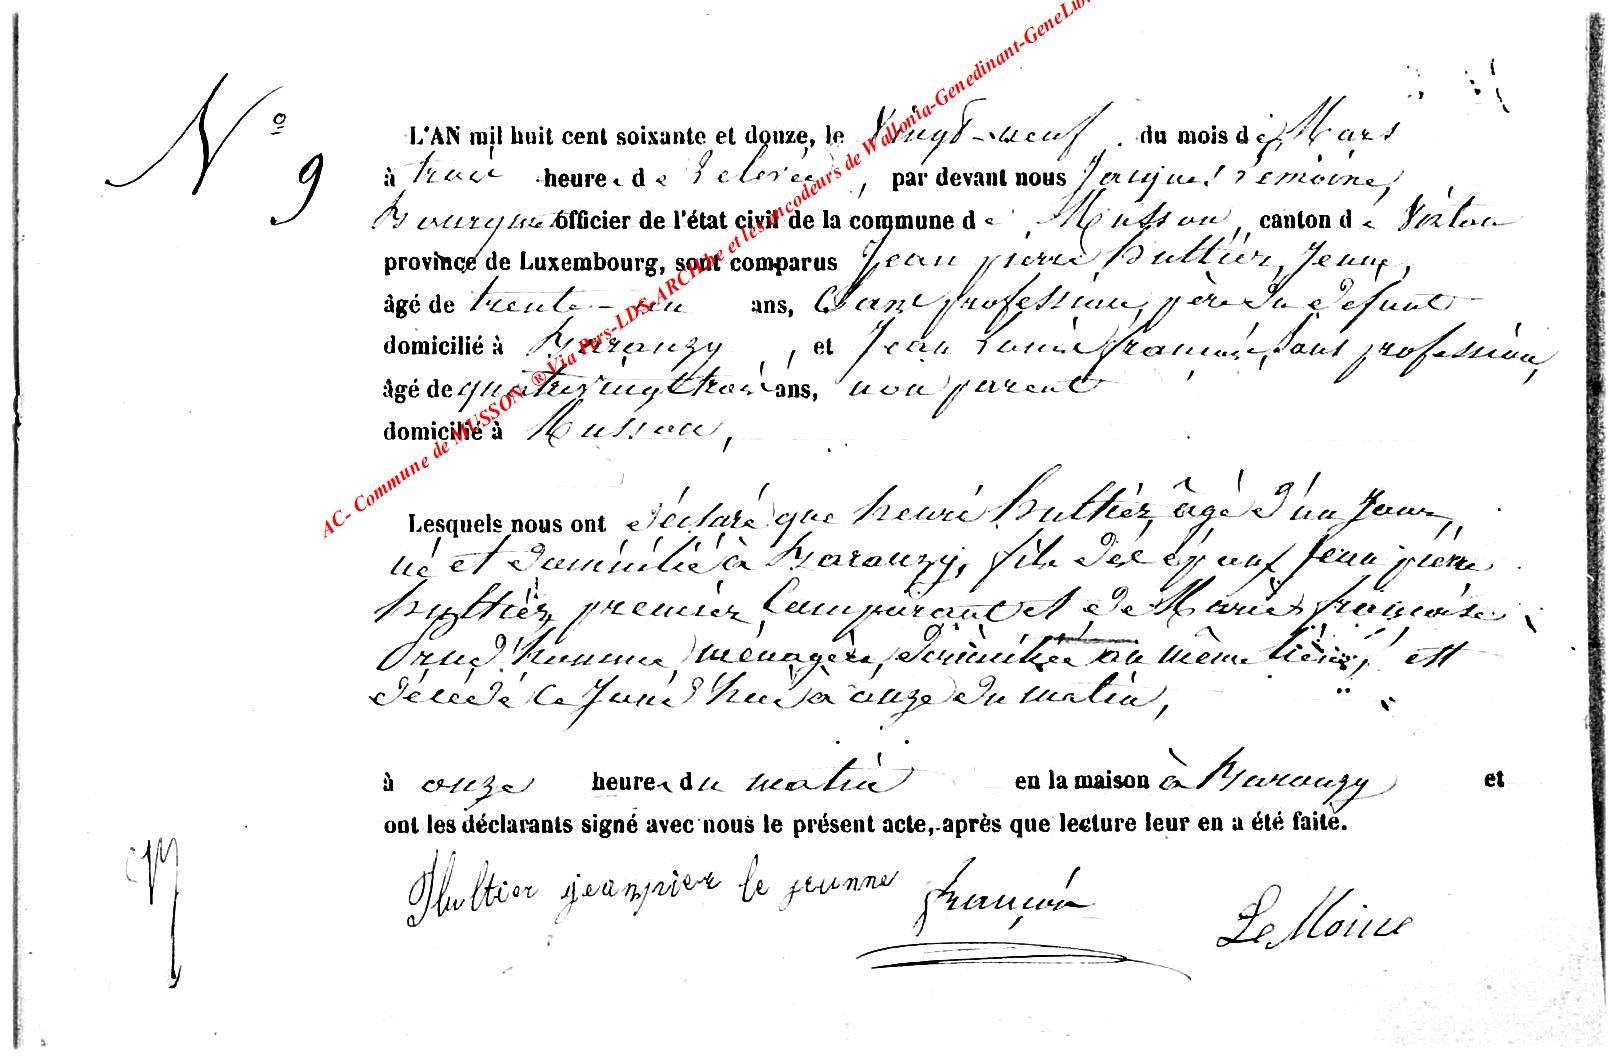 N° 9
L'AN mil huit cent soixante et douze, le Vingt-neuf du mois de Mars
à trois heures de relevée, par devant nous Jacques Lemoine,
Bourgmet officier de l'état civil de la commune de Musson, canton de Virton
province de Luxembourg, sont comparus Jean pierre hultier, Jeune,
âgé de trente-un ans, Sans profession, père du défunt
domicilié à Baranzy, et Jean Louis françois, Sans profession,
âgé de quatrevingt trois ans, non parent
domicilié à Musson,
Lesquels nous ont déclaré que henri hultier, âgé d'un Jour,
né et domicilié à Baranzy, fils des époux Jean pierre
hultier, premier Comparant et de Marie françoise
prud'homme, ménagère, domiciliée au même lieu, est
décédé Ce Jourd'hui à onze du matin,
à onze heures du matin en la maison à Baranzy et
ont les déclarants signé avec nous le présent acte, après que lecture leur en a été faite.
Hultier jeanpier le jeunne françois LeMoine
AC- Commune de MUSSON ® Via Pers-LDS-ARCH.be et les encodeurs de Wallonia-Genedinant-GeneLib